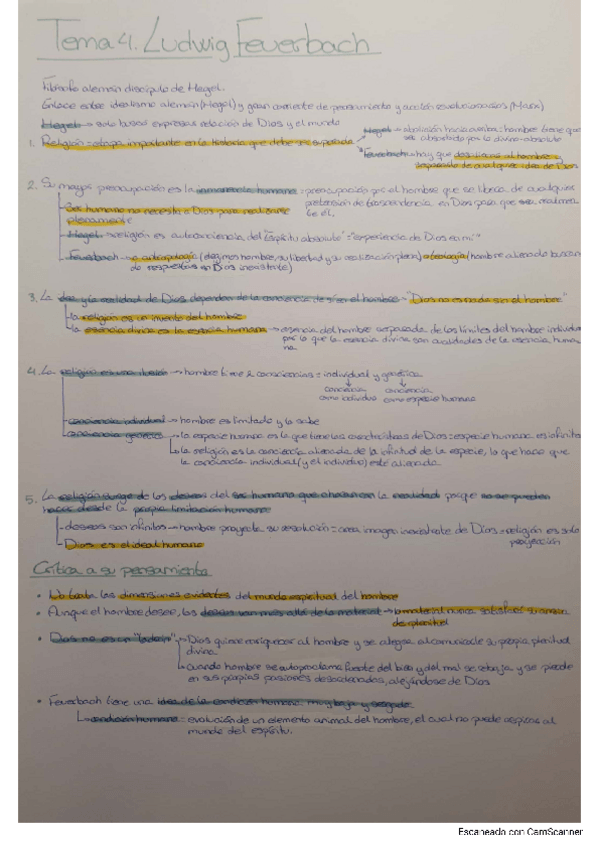 Tema 4. Ludwig Feuerbach
Filósofo alemán discípulo de Hegel.
Enlace entre idealismo alemán (Hegel) y gran corriente de pensamiento y acción revolucionarios (Marx)
Hegel → solo busca expresar relación de Dios y el mundo
1. Religión = etapa importante en la historia que debe ser superada
Hegel → abolición hacia arriba: hombre tiene que ser absorbido por lo divino-absoluto
Feuerbach → hay que desligar al hombre y separarlo de cualquier idea de Dios
2. Su mayor preocupación es la inmanencia humana = preocupación por el hombre que se libera de cualquier
pretensión de trascendencia, en Dios para que sea realmente él.
Ser humano no necesita a Dios para realizarse
plenamente
Hegel → religión es autoconciencia del "Espíritu absoluto" = "experiencia de Dios en mí"
Feuerbach → antropología (dezmos hombre, su libertad y su realización plena) a teología (hombre alienado buscan
do respuestas en Dios inexistente)
3. La idea y la realidad de Dios dependen de la conciencia de sí en el hombre → "Dios no es nada sin el hombre"
la religión es un invento del hombre
la esencia divina es la esencia humana → esencia del hombre separada de los límites del hombre individual
por lo que la esencia divina son cualidades de la esencia huma
na.
4. La religión es una ilusión → hombre tiene 2 consciencias = individual y genérica
conciencia conciencia
como individuo como especie humana
conciencia individual → hombre es limitado y lo sabe
conciencia genérica → la especie humana es la que tiene las características de Dios = especie humana es infinita
la religión es la conciencia alienada de la infinitud de la especie, lo que hace que
la conciencia individual (y el individuo) esté alienada
5. La religión surge de los deseos del ser humano que chocan con la realidad porque no se pueden
hacer desde la propia limitación humana
deseos son infinitos → hombre proyecta su resolución = crea imagen inexistente de Dios → religión es solo
proyección
Dios es el ideal humano
Crítica a su pensamiento
• No trata las dimensiones evidentes del mundo espiritual del hombre
• Aunque el hombre desee, los deseos van más allá de lo material → lo material nunca satisface su ansia
de plenitud
• Dios no es un "ladrón" → Dios quiere enriquecer al hombre y se alegra al comunicarle su propia plenitud
divina
cuando hombre se autoproclama fuente del bien y del mal se rebaja y se pierde
en sus propias pasiones desordenadas, alejándose de Dios
• Feuerbach tiene una idea de la condición humana muy baja y sesgada
condición humana = evolución de un elemento animal del hombre, el cual no puede aspirar al
mundo del espíritu.
Escaneado con CamScanner